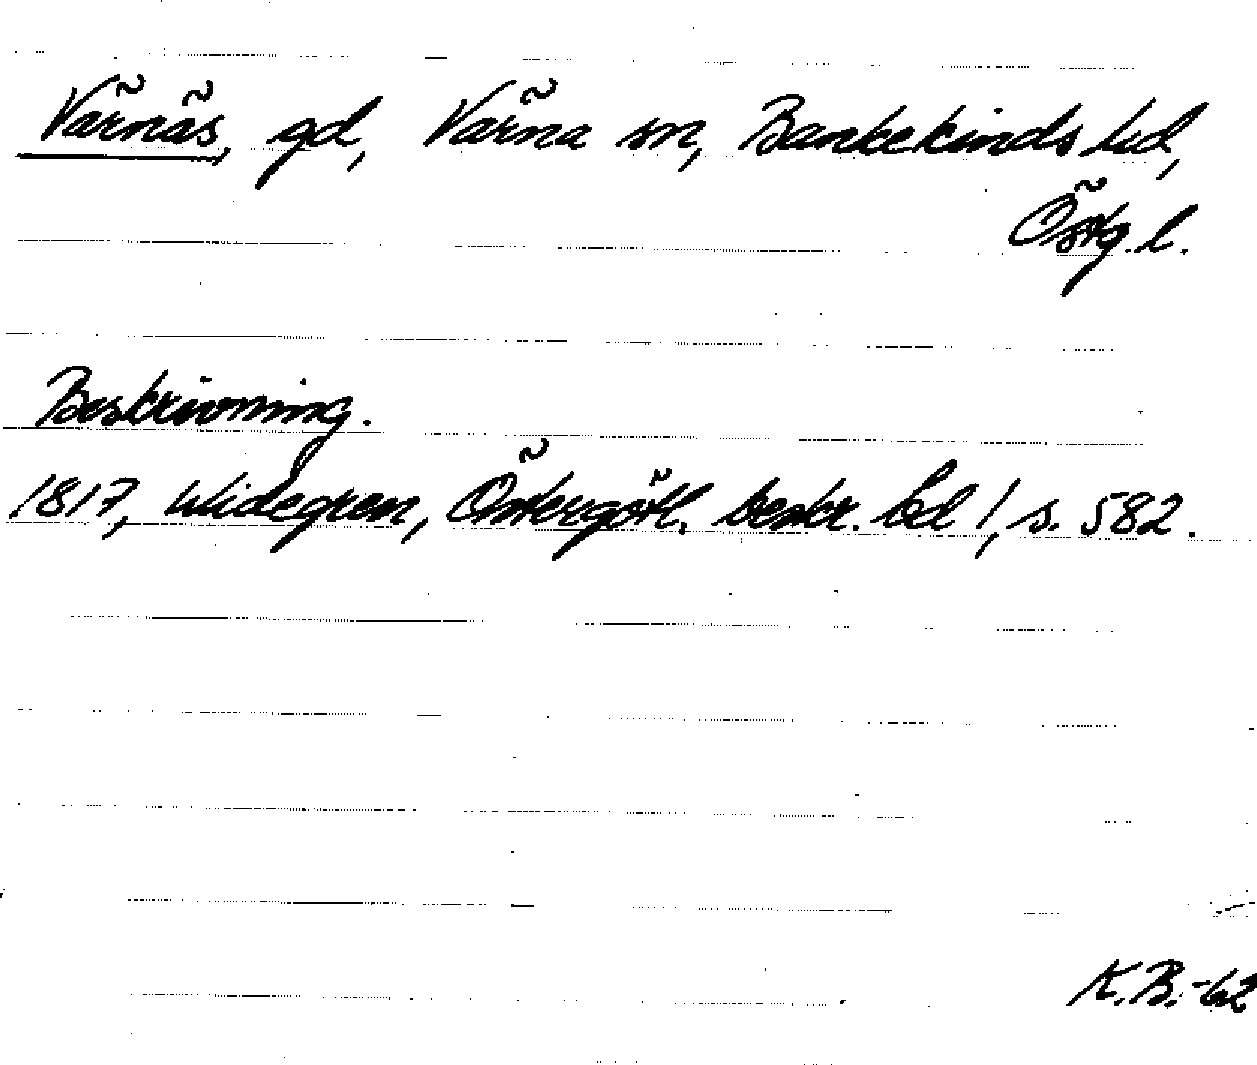 Värnäs, gd, Värna sn, Bankekinds hd,
Östg. l.
Beskrivning.
1817, Widegren, Östergötl. beskr. bd 1, s. 582.
K.B.-62